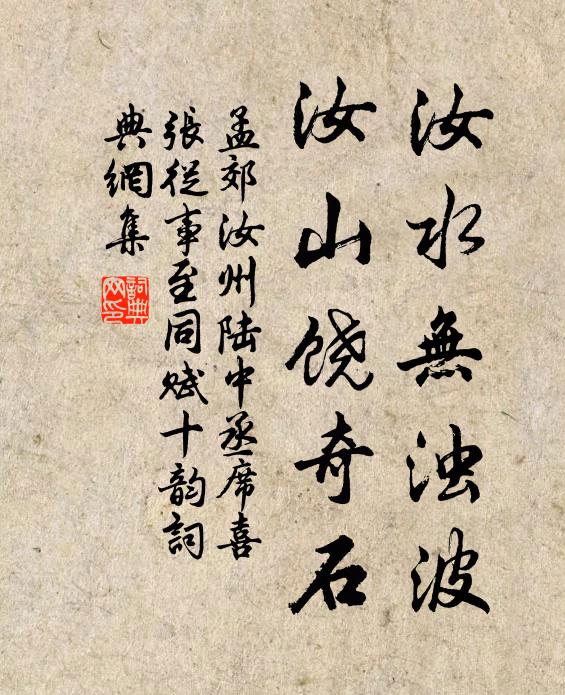 汝水無浊波
汝山饶奇石
孟郊汝州陆中丞席喜
張従事至同赋十韵詞
典網集
詞典网印